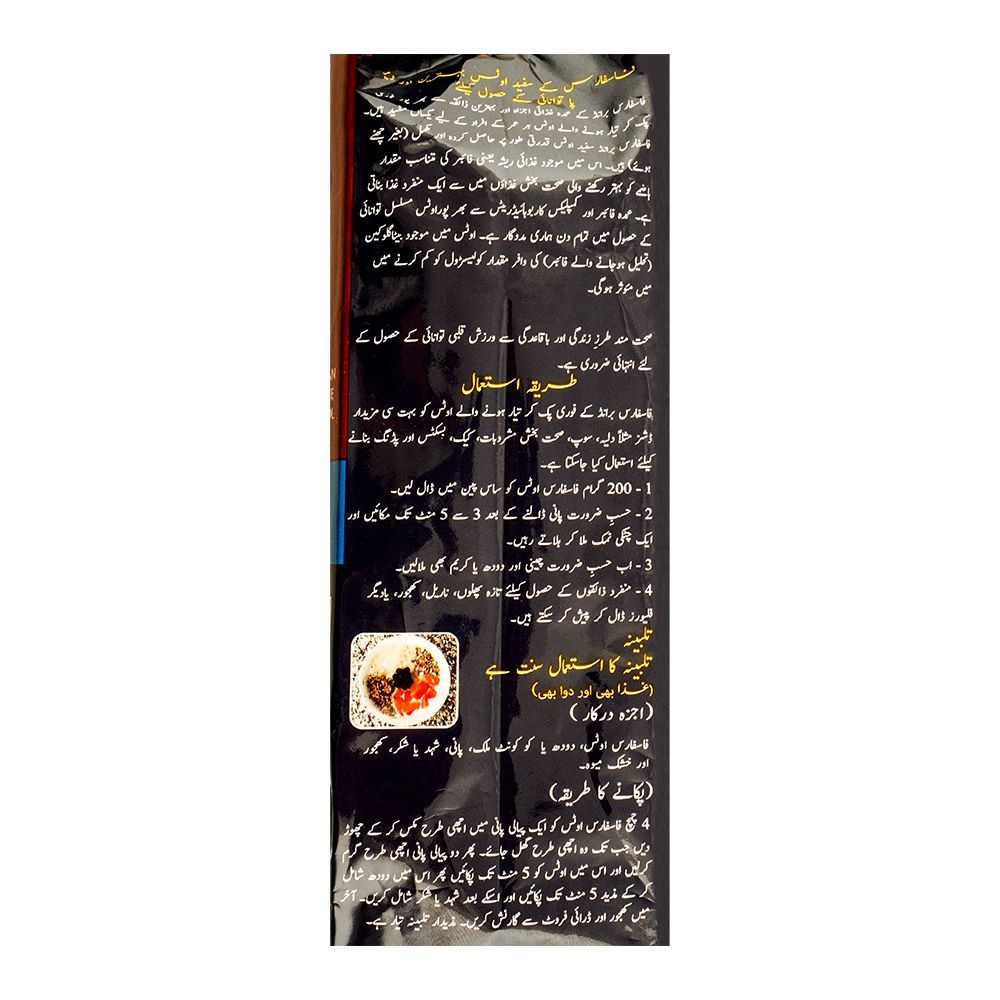 فاسفارس کے سفید اوٹس بہترین اور
پا توانائی کے حصول کیلئے
فاسفارس برانڈ کے عمدہ غذائی اجزاء اور بہترین ذائقہ سے بھر پور فوری
پک کر تیار ہونے والے اوٹس ہر عمر کے افراد کے لیے یکساں مفید ہیں۔
فاسفارس برانڈ سفید اوٹس قدرتی طور پر حاصل کردہ اور مکمل (بغیر چھنے
ہوئے) ہیں۔ اس میں موجود غذائی ریشہ یعنی فائبر کی متناسب مقدار
ہاضمے کو بہتر رکھنے والی صحت بخش غذاؤں میں سے ایک منفرد غذا بناتی
ہے۔ عمدہ فائبر اور کمپلیکس کاربوہائیڈریٹس سے بھر پور اوٹس مسلسل توانائی
کے حصول میں تمام دن ہماری مددگار ہے۔ اوٹس میں موجود بیٹاگلوکین
(تحلیل ہوجانے والے فائبر) کی وافر مقدار کولیسٹرول کو کم کرنے میں
میں مؤثر ہوگی۔
صحت مند طرزِ زندگی اور باقاعدگی سے ورزش قلبی توانائی کے حصول کے
لئے انتہائی ضروری ہے۔
طریقہ استعمال
فاسفارس برانڈ کے فوری پک کر تیار ہونے والے اوٹس کو بہت سی مزیدار
ڈشز مثلاً دلیہ، سوپ، صحت بخش مشروبات، کیک، بسکٹس اور پڈنگ بنانے
کیلئے استعمال کیا جاسکتا ہے۔
1 - 200 گرام فاسفارس اوٹس کو ساس پین میں ڈال لیں۔
2 - حسبِ ضرورت پانی ڈالنے کے بعد 3 سے 5 منٹ تک پکائیں اور
ایک چٹکی نمک ملا کر ہلاتے رہیں۔
3 - اب حسبِ ضرورت چینی اور دودھ یا کریم بھی ملالیں۔
4 - منفرد ذائقوں کے حصول کیلئے تازہ پھلوں، ناریل، کھجور، یادیگر
فلیورز ڈال کر پیش کر سکتے ہیں۔
تلبینہ
تلبینہ کا استعمال سنت ہے
(غذا بھی اور دوا بھی)
(اجزہ درکار)
فاسفارس اوٹس، دودھ یا کو کونٹ ملک، پانی، شہد یا شکر، کھجور
اور خشک میوہ۔
(پکانے کا طریقہ)
4 چمچ فاسفارس اوٹس کو ایک پیالی پانی میں اچھی طرح مکس کر کے چھوڑ
دیں جب تک وہ اچھی طرح گھل جائے۔ پھر دو پیالی پانی اچھی طرح گرم
کرلیں اور اس میں اوٹس کو 5 منٹ تک پکائیں پھر اس میں دودھ شامل
کر کے مذید 5 منٹ تک پکائیں اور اسکے بعد شہد یا شکر شامل کریں۔ آخر
میں کھجور اور ڈرائی فروٹ سے گارنش کریں۔ مذیدار تلبینہ تیار ہے۔